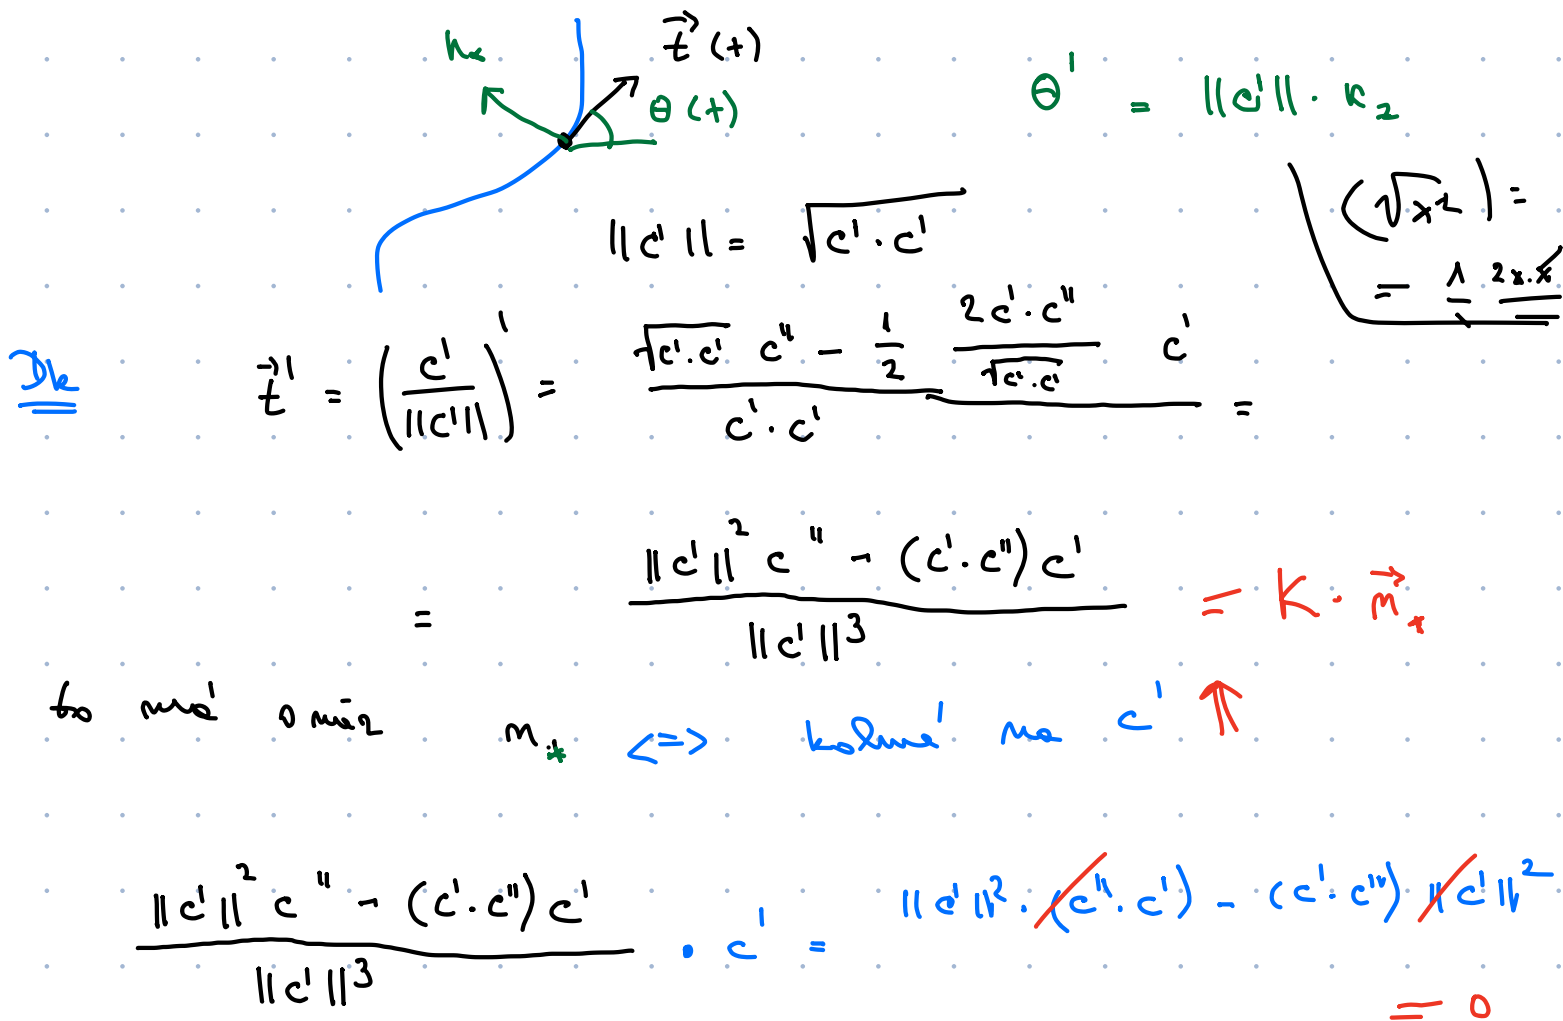 n* \vec{t}(t)
θ(t)
θ' = ||c'|| · κ_2
||c'|| = √(c'·c')
(√x²) =
= 1/ 2x·x
Dk \vec{t}' = (c'/||c'||)' = (√(c'·c') c'' - 1/2 (2c'·c'')/√(c'·c') c')/(c'·c') =
= (||c'||² c'' - (c'·c'')c')/||c'||³ = K · \vec{n}_*
to má směr n_* <=> kolmá na c' ⇑
(||c'||² c'' - (c'·c'')c')/||c'||³ · c' = ||c'||² · (c''·c') - (c'·c'') ||c'||²
= 0